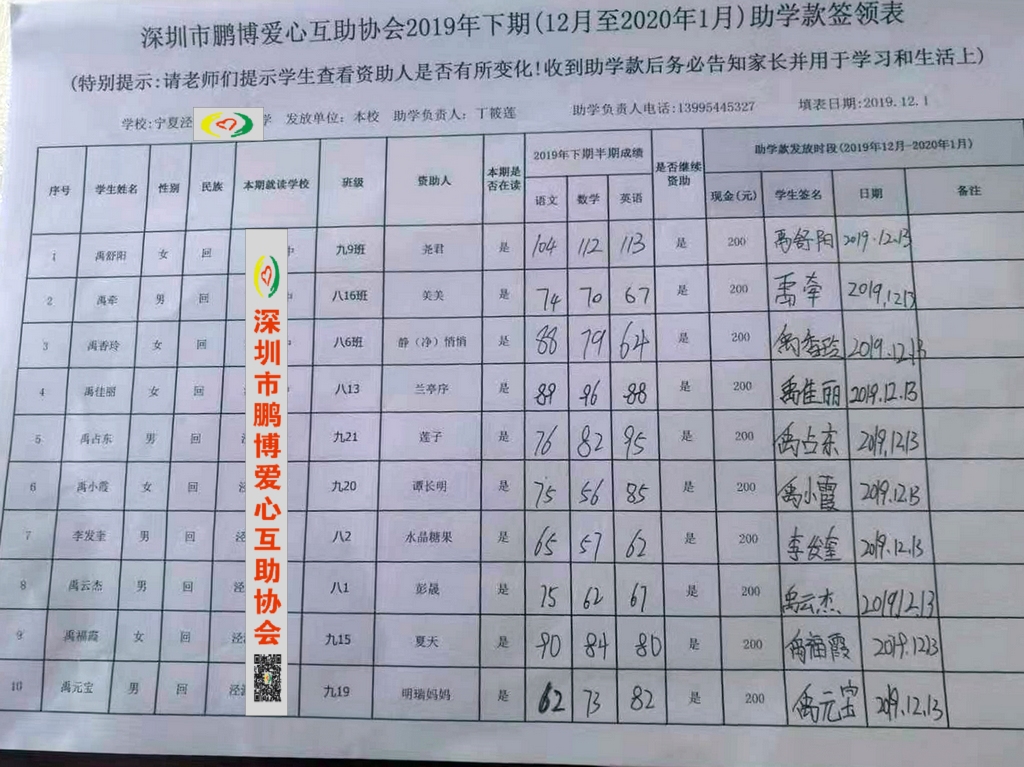 深圳市鹏博爱心互助协会2019年下期(12月至2020年1月)助学款签领表
(特别提示:请老师们提示学生查看资助人是否有所变化!收到助学款后务必告知家长并用于学习和生活上)
学校:宁夏泾 学 发放单位: 本校 助学负责人: 丁筱莲 助学负责人电话:13995445327 填表日期:2019.12.1
序号 学生姓名 性别 民族 本期就读学校 班级 资助人 本期是否在读 2019年下期半期成绩 是否继续资助 助学款发放时段(2019年12月-2020年1月) 备注
语文 数学 英语 现金(元) 学生签名 日期
1 禹舒阳 女 回 中 九9班 尧君 是 104 112 113 是 200 禹舒阳 2019.12.13
2 禹牵 男 回 中 八16班 美美 是 74 70 67 是 200 禹牵 2019.12.13
3 禹香玲 女 回 八6班 静（净）悄悄 是 88 79 64 是 200 禹香玲 2019.12.13
4 禹佳丽 女 回 八13 兰亭序 是 89 96 88 是 200 禹佳丽 2019.12.13
5 禹占东 男 回 九21 莲子 是 76 82 95 是 200 禹占东 2019.12.13
6 禹小霞 女 回 泾 九20 谭长明 是 75 56 85 是 200 禹小霞 2019.12.13
7 李发奎 男 回 泾 八2 水晶糖果 是 65 57 62 是 200 李发奎 2019.12.13
8 禹云杰 男 回 泾 八1 彭晟 是 75 62 67 是 200 禹云杰 2019.12.13
9 禹福霞 女 回 泾 九15 夏天 是 90 84 80 是 200 禹福霞 2019.12.13
10 禹元宝 男 回 泾 九19 明瑞妈妈 是 62 73 82 是 200 禹元宝 2019.12.13
深圳市鹏博爱心互助协会